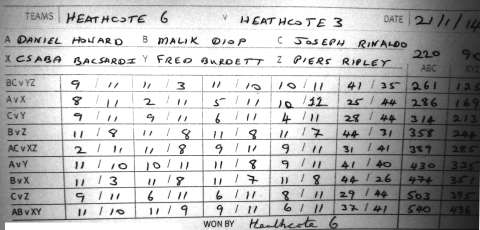 TEAMS HEATHCOTE 6 V HEATHCOTE 3 DATE 21/1/14
A DANIEL HOWARD B MALIK DIOP C JOSEPH RINALDO 220 90
X CSABA BACSARDI Y FRED BURDETT Z PIERS RIPLEY ABC XYZ
BCvYZ 9 / 11 11 / 3 11 / 10 10 / 11 41 / 35 261 125
AvX 8 / 11 2 / 11 5 / 11 10 / 11 25 / 44 286 169
CvY 9 / 11 9 / 11 6 / 11 4 / 11 28 / 44 314 213
BvZ 11 / 8 11 / 8 11 / 8 11 / 7 44 / 31 358 244
ACvXZ 2 / 11 11 / 8 9 / 11 9 / 11 31 / 41 389 285
AvY 11 / 10 10 / 11 11 / 8 9 / 11 41 / 40 430 325
BvX 11 / 3 11 / 8 11 / 7 11 / 8 44 / 26 474 351
CvZ 9 / 11 6 / 11 6 / 11 8 / 11 29 / 44 503 395
ABvXY 11 / 10 11 / 9 9 / 11 6 / 11 37 / 41 540 436
WON BY Heathcote 6